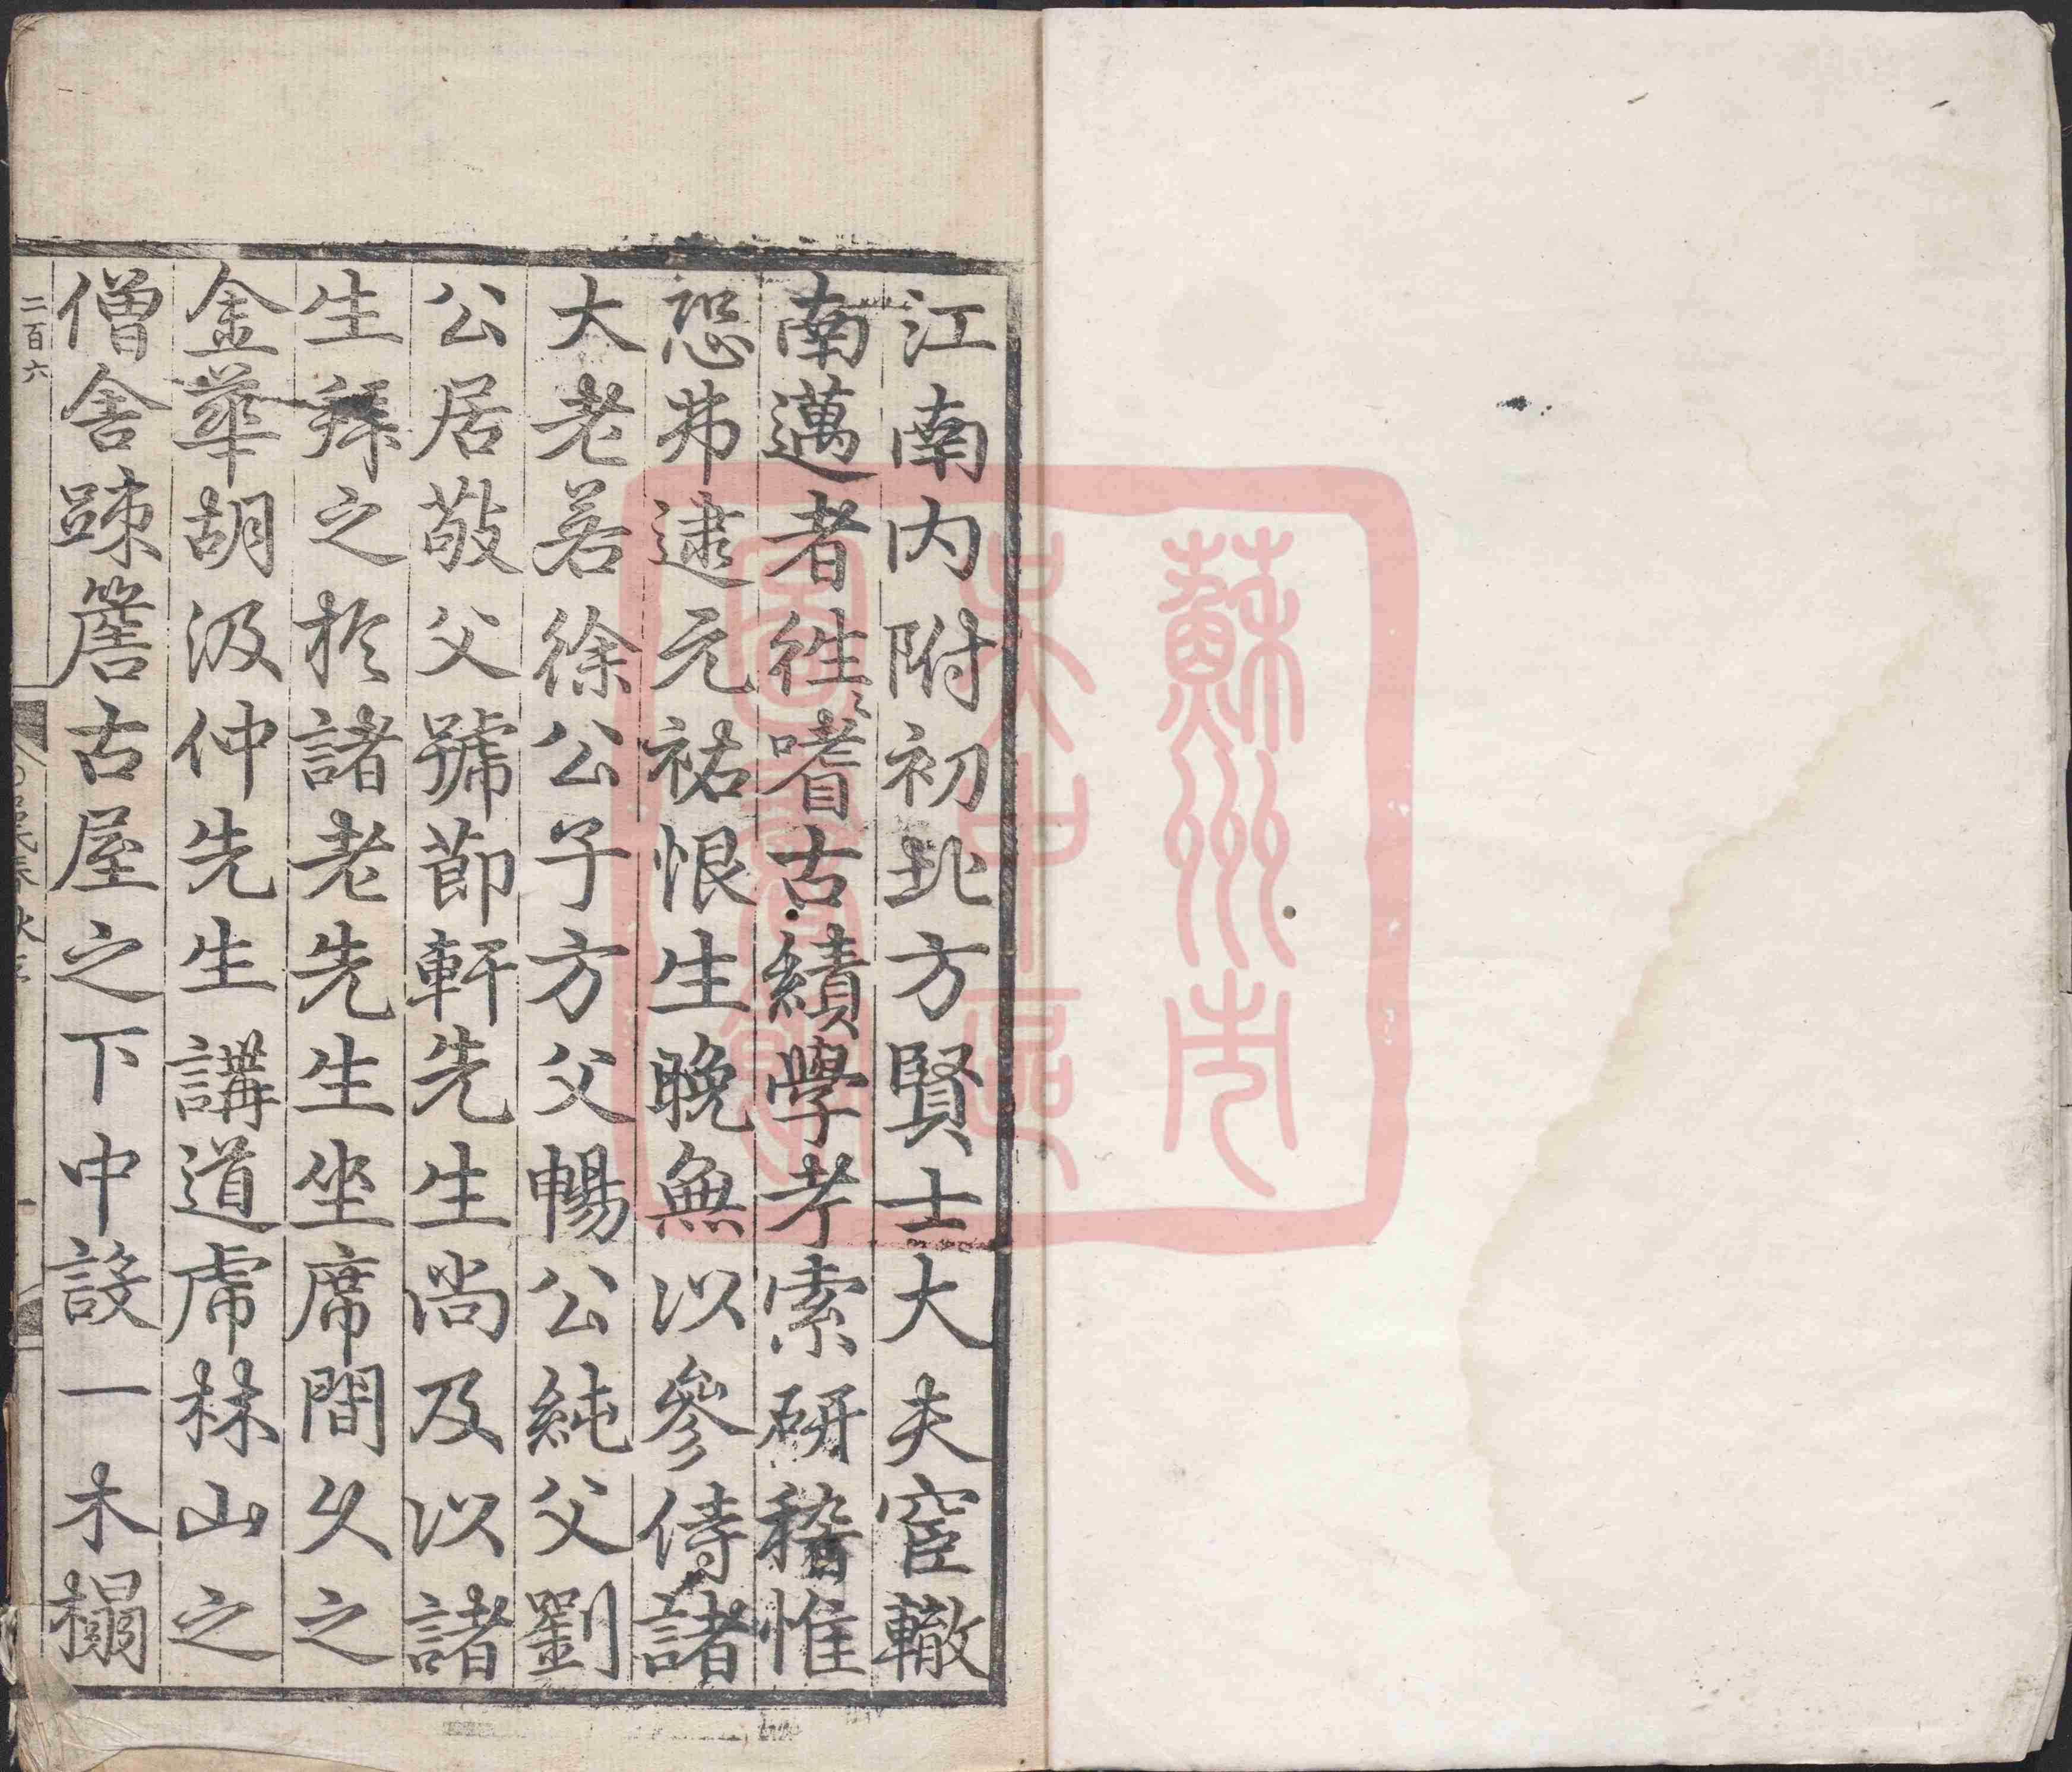 江南内附初北方賢士大夫宦轍
南邁者徃〻嗜古績學考索研稽惟
恐弗逮元祐恨生晩無以參侍諸
大老若徐公子方父暢公純父劉
公居敬父號節軒先生尚及以諸
生拜之於諸老先生坐席間久之
金華胡汲仲先生講道虎林山之
僧舎踈簷古屋之下中設一木榻
二百六
蘇州市
吴中區
圖書館